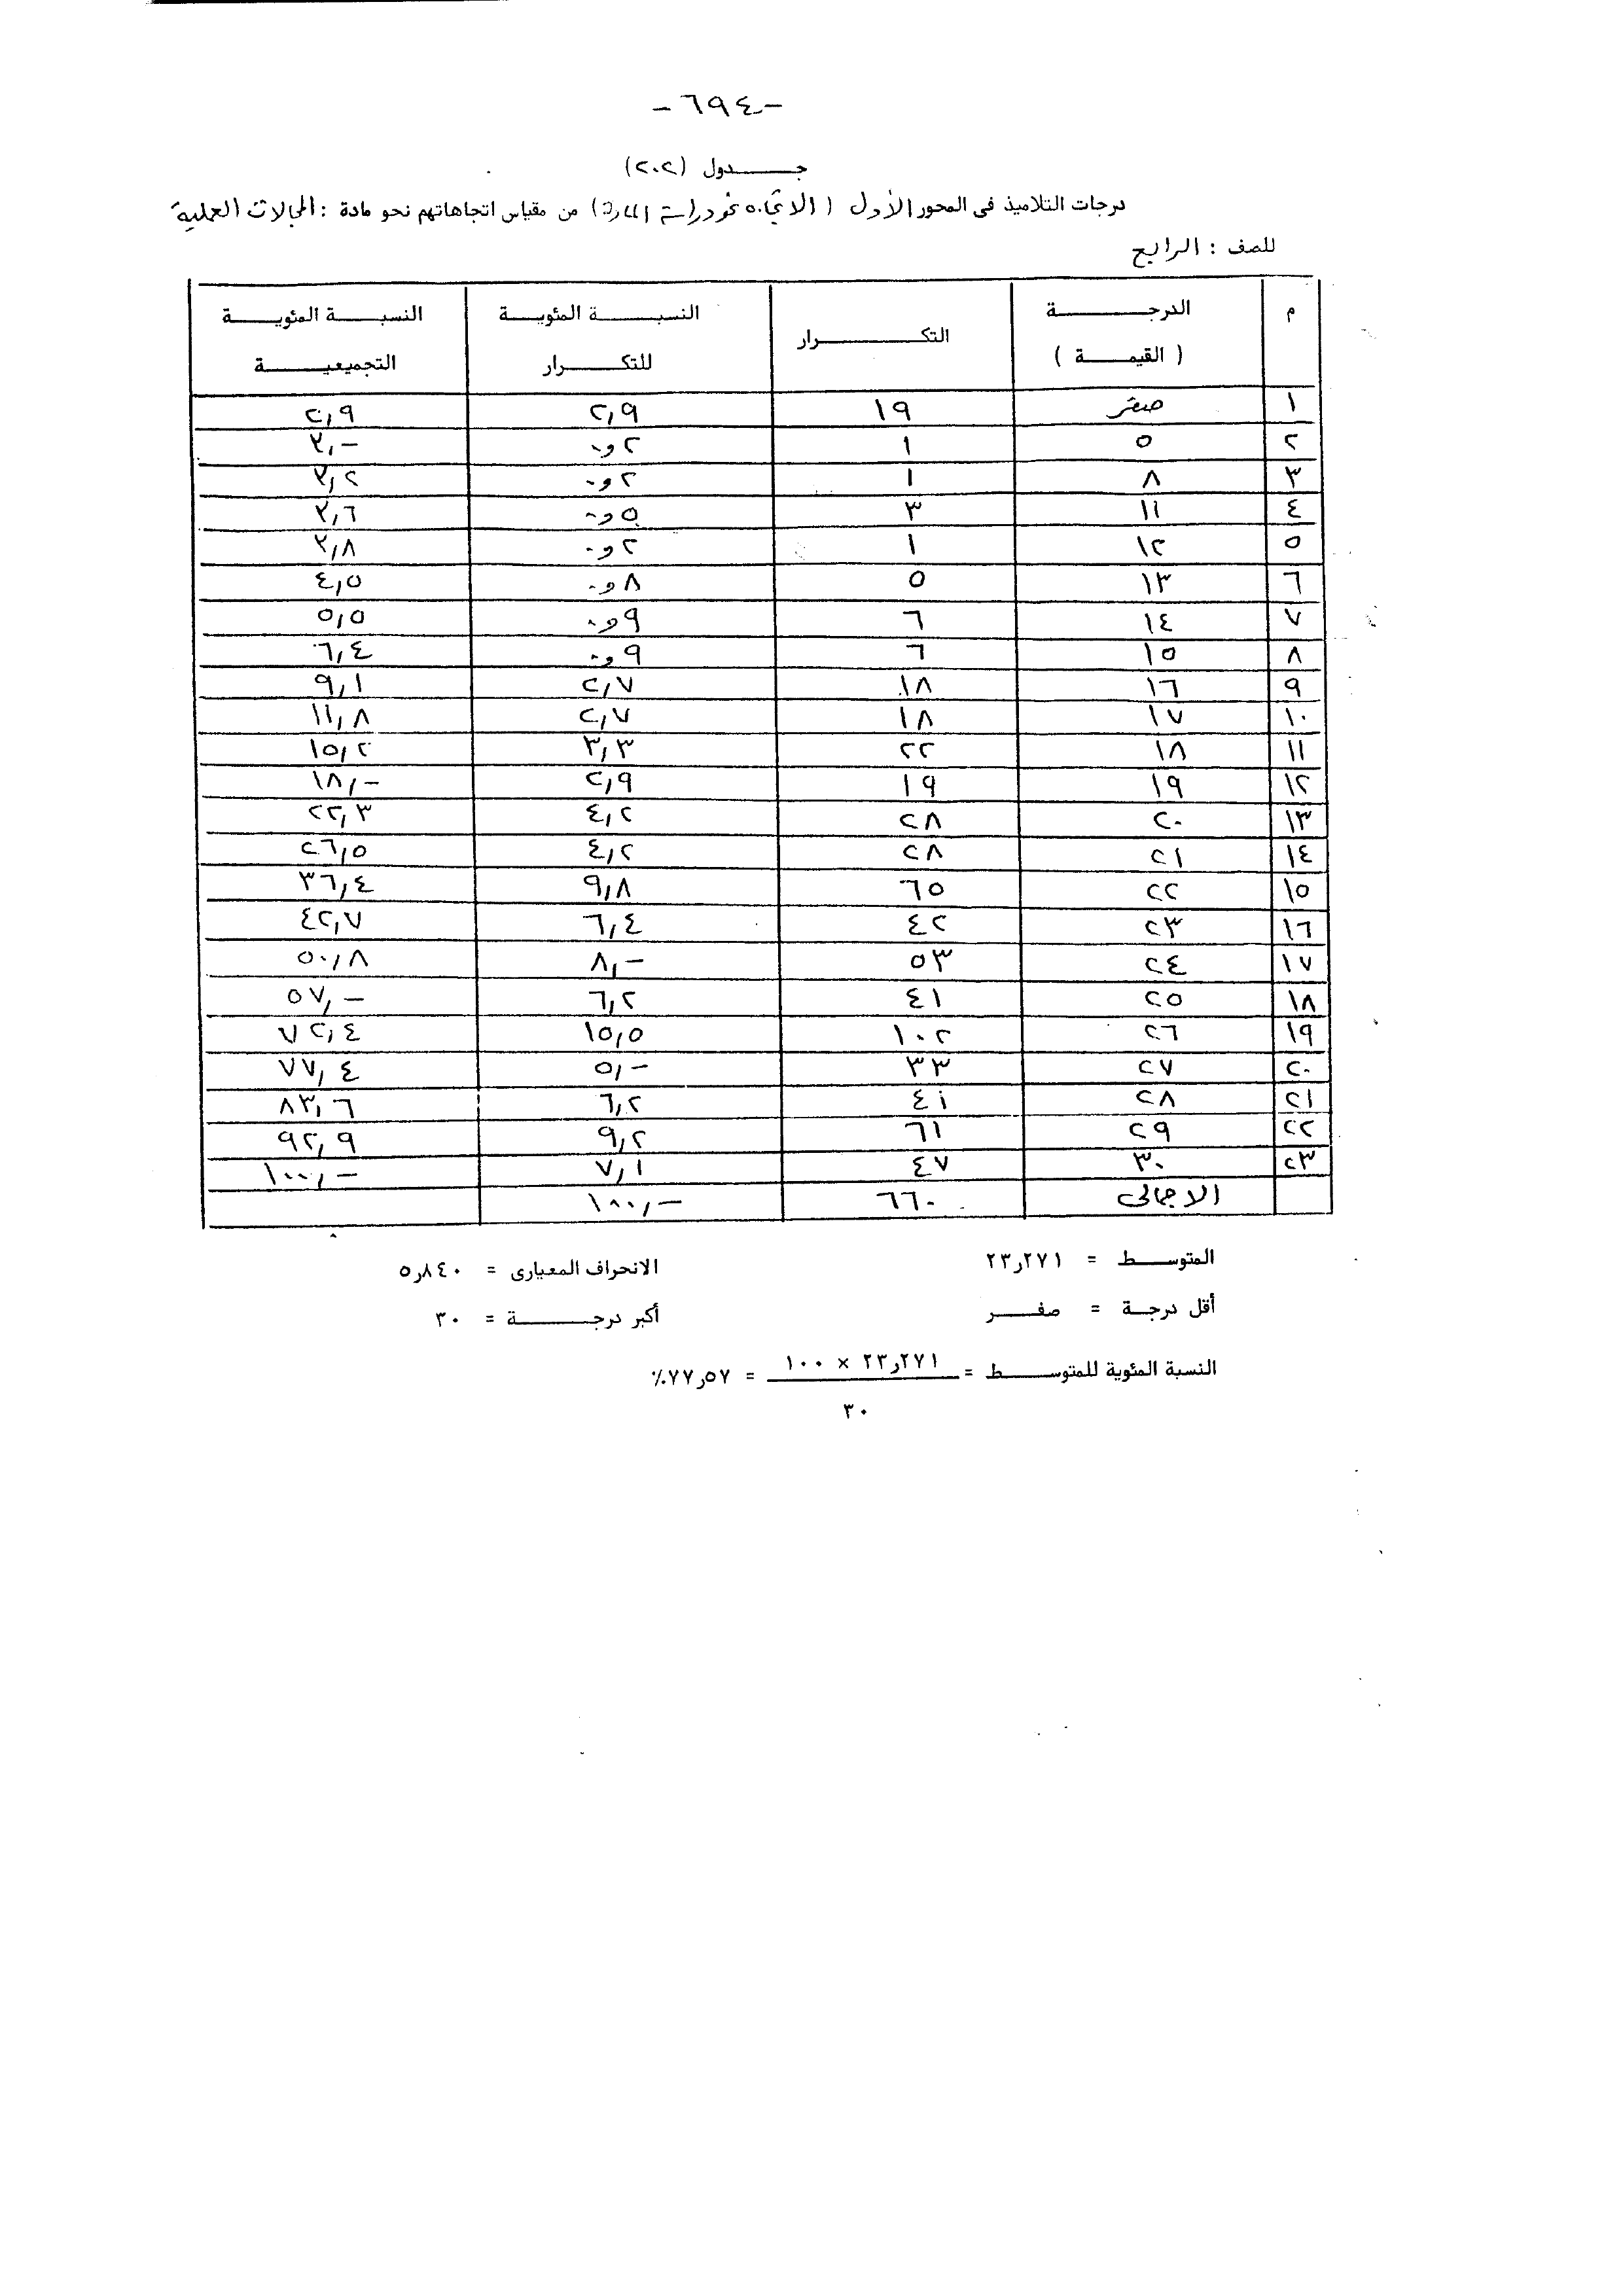 -٦٩٤-
جدول (٢٠٢)
درجات التلاميذ فى المحور الأول (الاتجاه نحو دراسة المادة) من مقياس اتجاهاتهم نحو مادة : المجالات العملية
للصف : الرابع
م الدرجة (القيمة) التكرار النسبة المئوية للتكرار النسبة المئوية التجميعية
١ صفر ١٩ ٢,٩ ٢,٩
٢ ٥ ١ ٢و٠ ٣,-
٣ ٨ ١ ٢و٠ ٣,٢
٤ ١١ ٣ ٥و٠ ٣,٦
٥ ١٢ ١ ٢و٠ ٣,٨
٦ ١٣ ٥ ٨و٠ ٤,٥
٧ ١٤ ٦ ٩و٠ ٥,٥
٨ ١٥ ٦ ٩و٠ ٦,٤
٩ ١٦ ١٨ ٢,٧ ٩,١
١٠ ١٧ ١٨ ٢,٧ ١١,٨
١١ ١٨ ٢٢ ٣,٣ ١٥,٢
١٢ ١٩ ١٩ ٢,٩ ١٨,-
١٣ ٢٠ ٢٨ ٤,٢ ٢٢,٣
١٤ ٢١ ٢٨ ٤,٢ ٢٦,٥
١٥ ٢٢ ٦٥ ٩,٨ ٣٦,٤
١٦ ٢٣ ٤٢ ٦,٤ ٤٢,٧
١٧ ٢٤ ٥٣ ٨,- ٥٠,٨
١٨ ٢٥ ٤١ ٦,٢ ٥٧,-
١٩ ٢٦ ١٠٢ ١٥,٥ ٧٢,٤
٢٠ ٢٧ ٣٣ ٥,- ٧٧,٤
٢١ ٢٨ ٤١ ٦,٢ ٨٣,٦
٢٢ ٢٩ ٦١ ٩,٢ ٩٢,٩
٢٣ ٣٠ ٤٧ ٧,١ ١٠٠,-
الاجمالى ٦٦٠ ١٠٠,-
المتوسط = ٢٧١ر٢٣ الانحراف المعيارى = ٨٤٠ر٥
أقل درجة = صفر أكبر درجة = ٣٠
النسبة المئوية للمتوسط = ٢٧١ر٢٣ × ١٠٠ = ٥٧ر٧٧٪
٣٠